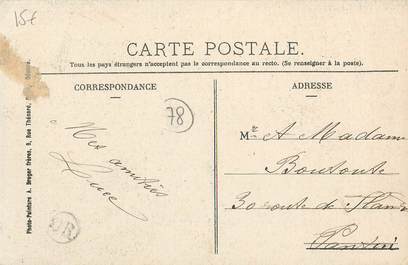 15€
CARTE POSTALE.
Tous les pays étrangers n'acceptent pas le correspondance au recto. (Se renseigner à la poste).
CORRESPONDANCE
ADRESSE
78
Mr et Madame
Boutoute
30 route de Flan
Pantin
Mes amitiés
Luce
OR
Photo-Peinture A. Breger Frères, 9, Rue Thénard,